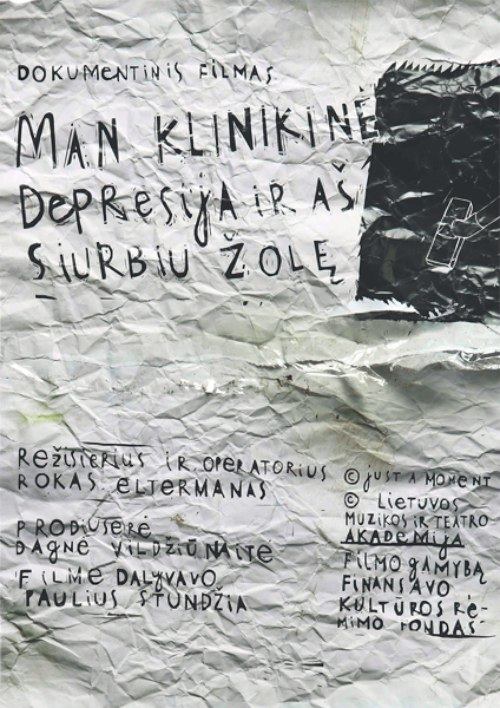 DOKUMENTINIS FILMAS
MAN KLINIKINĖ
DEPRESIJA IR AŠ
SIURBIU ŽOLĘ
REŽISIERIUS IR OPERATORIUS
ROKAS ELTERMANAS
PRODIUSERĖ
DAGNĖ VILDŽIŪNAITE
FILME DALYVAVO
PAULIUS STUNDŽIA
© JUST A MOMENT
© LIETUVOS
MUZIKOS IR TEATRO
AKADEMIJA
FILMO GAMYBĄ
FINANSAVO
KULTŪROS RĖ-
MIMO FONDAS